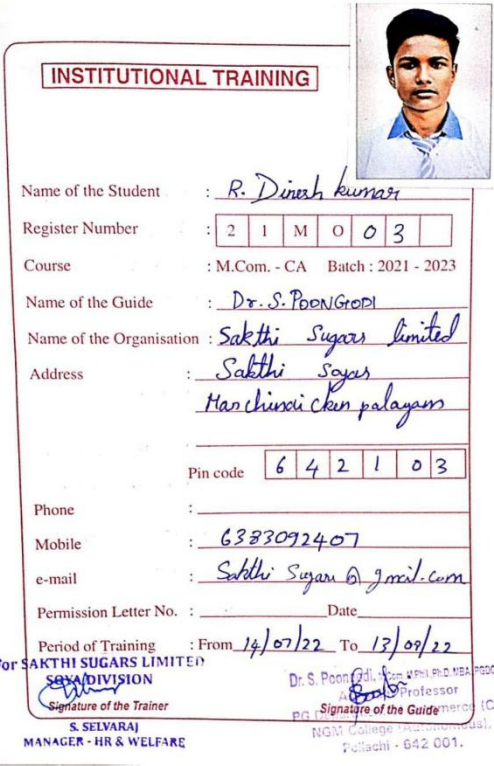 INSTITUTIONAL TRAINING
Name of the Student : R. Dinesh kumar
Register Number : 2 1 M O 0 3
Course : M.Com. - CA Batch : 2021 - 2023
Name of the Guide : Dr. S. POONGODI
Name of the Organisation : Sakthi Sugars limited
Address : Sakthi
palayam
Pin code 6 4 2 1 0 3
Phone :
Mobile : 6383092407
e-mail : Sakthi Sugars @ gmail.com
Permission Letter No. : Date
Period of Training : From 14/07/22 To 13/08/22
For SAKTHI SUGARS LIMITED
SOYA DIVISION
Signature of the Trainer
S. SELVARAJ
MANAGER - HR & WELFARE
Dr. S. Poongodi,
Professor
Signature of the Guide
NGM College
Pollachi - 642 001.